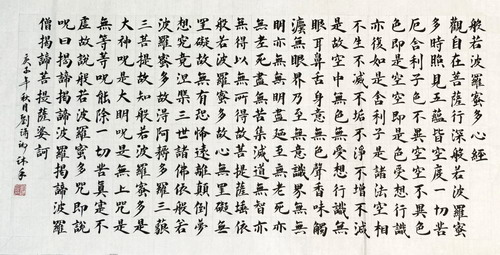 般若波羅蜜多心經
觀自在菩薩行深般若波羅蜜
多時照見五蘊皆空度一切苦
厄舍利子色不異空空不異色
色即是空空即是色受想行識
亦復如是舍利子是諸法空相
不生不滅不垢不淨不增不減
是故空中無色無受想行識無
眼耳鼻舌身意無色聲香味觸
法無眼界乃至無意識界無無
明亦無無明盡乃至無老死亦
無老死盡無苦集滅道無智亦
無得以無所得故菩提薩埵依
般若波羅蜜多故心無罣礙無
罣礙故無有恐怖遠離顛倒夢
想究竟涅槃三世諸佛依般若
波羅蜜多故得阿耨多羅三藐
三菩提故知般若波羅蜜多是
大神咒是大明咒是無上咒是
無等等咒能除一切苦真實不
虛故說般若波羅蜜多咒即說
咒曰揭諦揭諦波羅揭諦波羅
僧揭諦菩提薩婆訶
庚子年秋月劉沐手